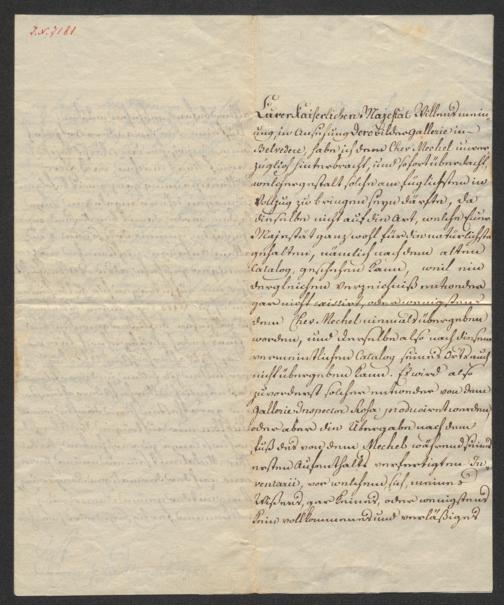 J.N. 7181
Euerer Kaiserlichen Majestät Willensmein
ung, in Ansehung Dero Bilder Gallerie im
Belvedere, habe ich dem Chev. Mechel unver
züglich hinterbracht, und sofort überdacht,
welchergestalt solche am füglichsten in
Vollzug zu bringen seyn dürfte, da
dieselbe nicht auf die Art, welche Euer
Majestät ganz wohl für die natürlichste
gehalten, nämlich nach dem alten
Catalog, geschehen kann, weil ein
dergleichen Verzeichniß entweder
gar nicht existirt, oder wenigstens
dem Chev. Mechel niemals übergeben
worden, und derselbe also nach diesem
vermeintlichen Catalog seiner Orts auch
nicht übergeben kann. Es wird also
zuvorderst solcher entweder von dem
Gallerie Inspector Rosa producirt werden,
oder aber die Übergabe nach dem
Fuß des von dem Mechel während seines
ersten Aufenthalts verfertigten In
ventarii, vor welchem sich, meines
Wissens, gar keines, oder wenigstens
kein vollkommenes und verläßiges